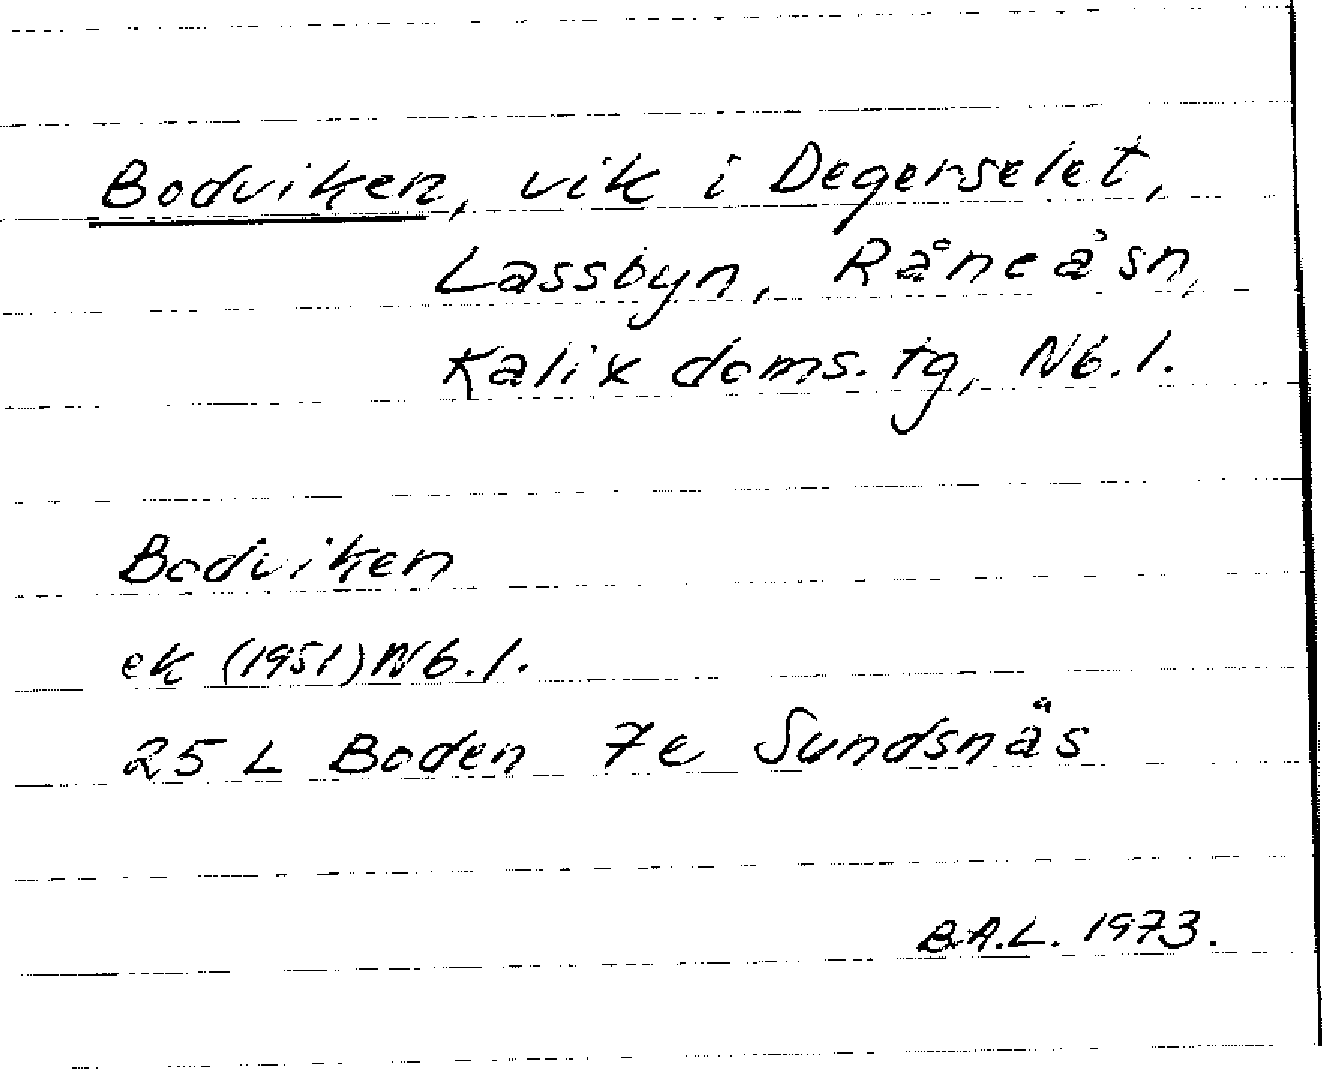 Bodviken, vik i Degerselet,
Lassbyn, Råneå sn,
Kalix doms. tg, Nb. l.
Bodviken
ek (1951) Nb. l.
25 L Boden 7e Sundsnäs
B.A.L. 1973.